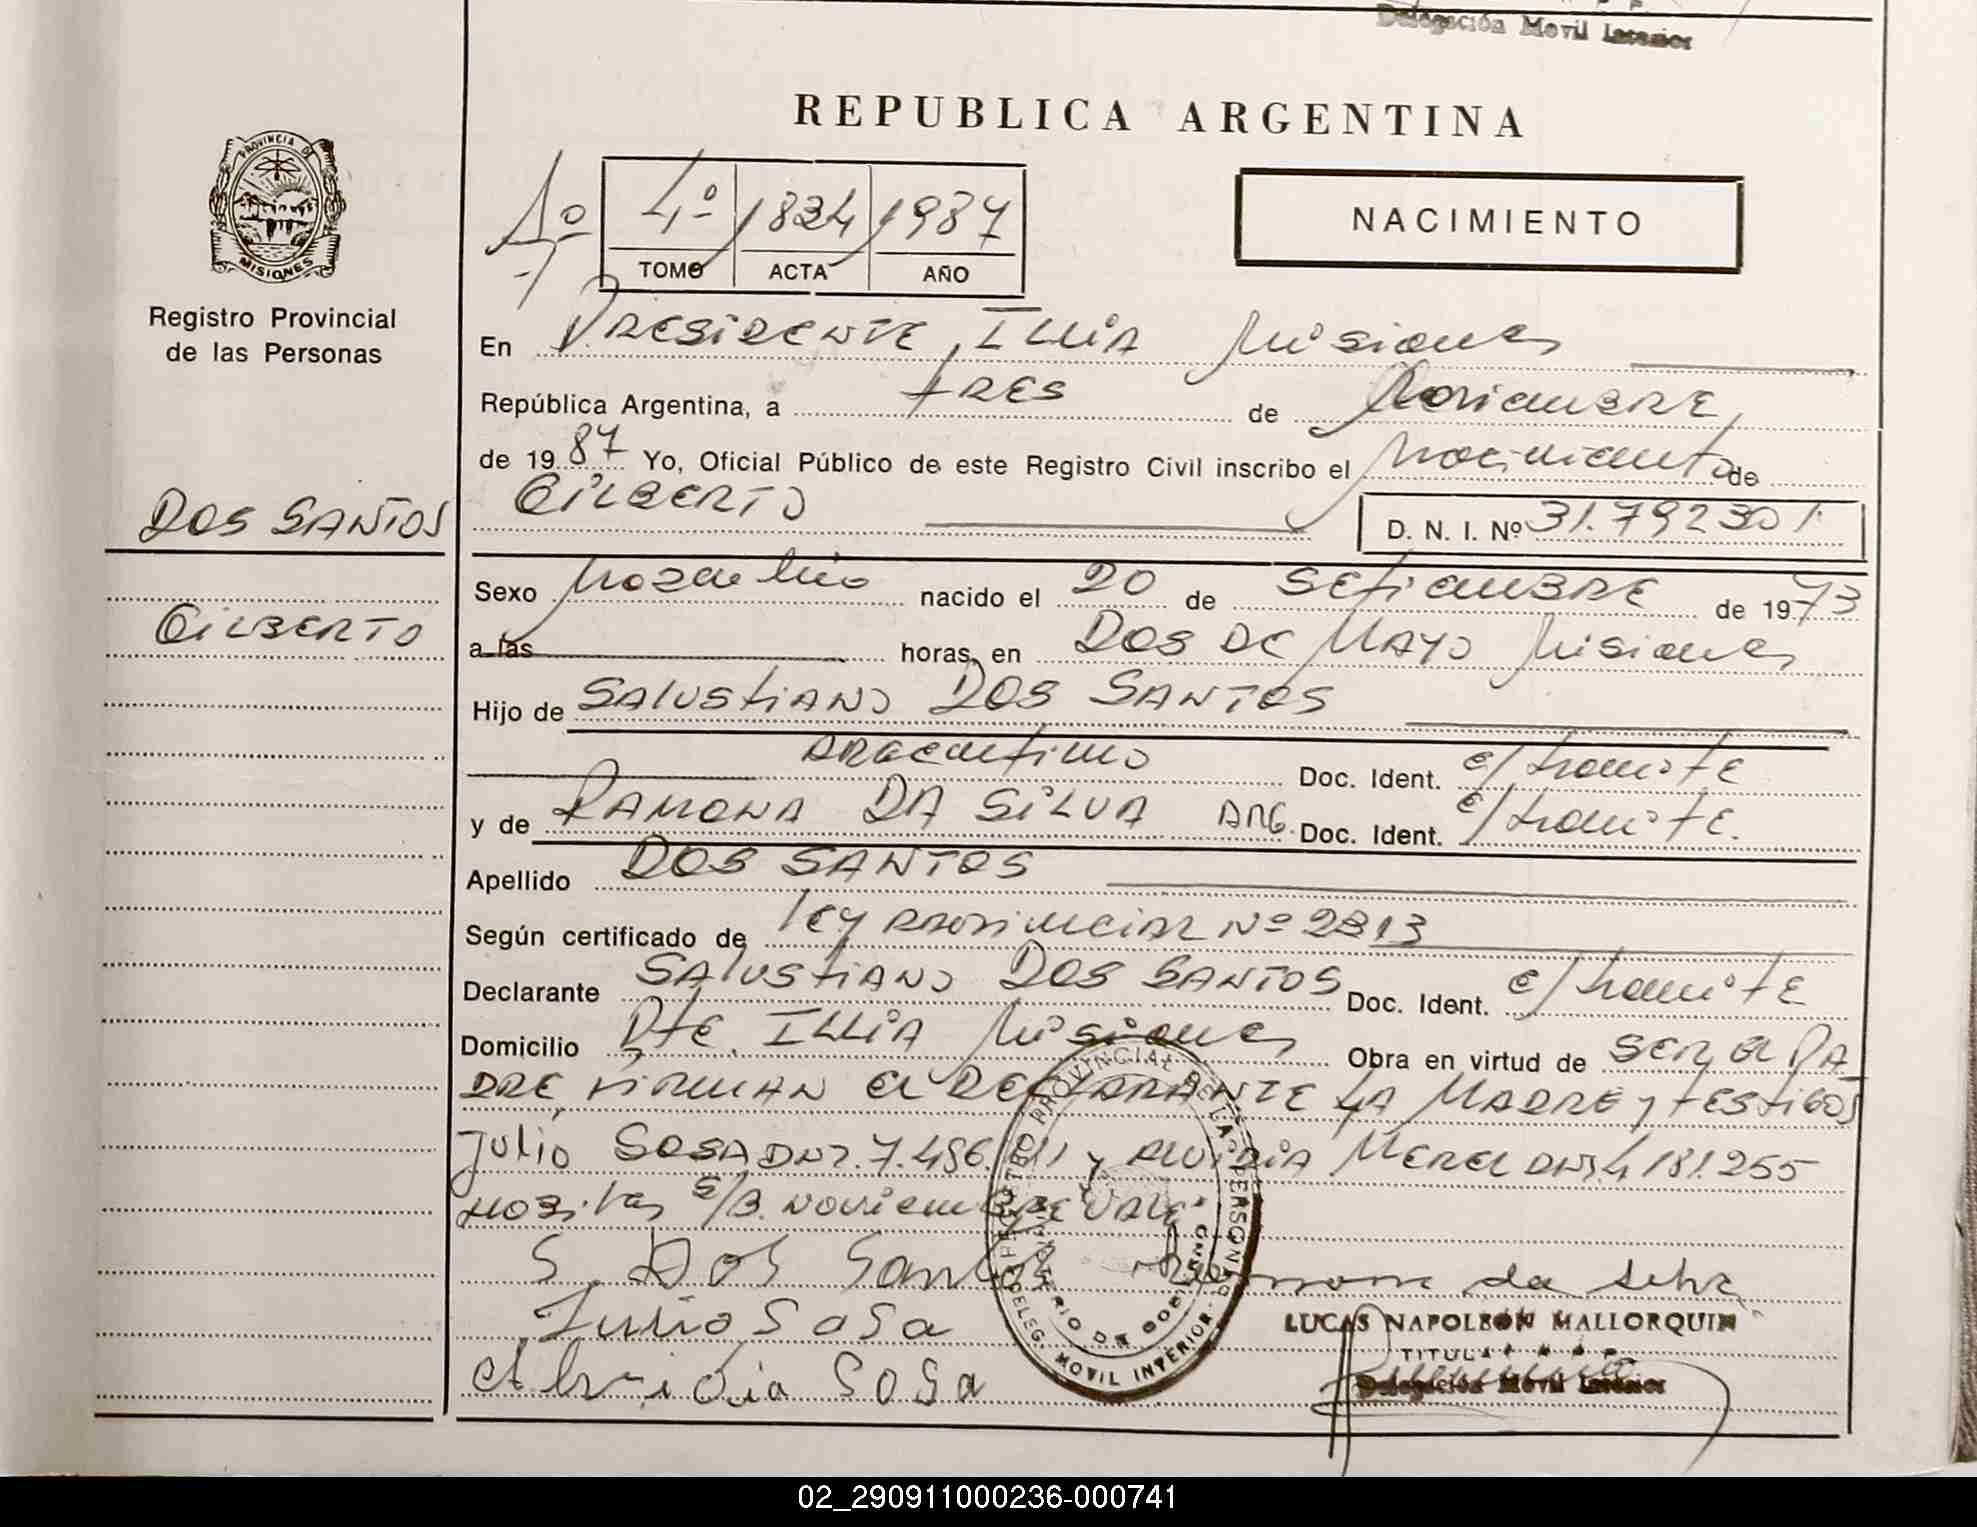 Delegación Movil Interior
REPUBLICA ARGENTINA
PROVINCIA DE
MISIONES
Registro Provincial
de las Personas
4º 1824 1987
TOMO ACTA AÑO
NACIMIENTO
En PRESIDENTE ILLIA Misiones
República Argentina, a tres de Noviembre
de 1987 Yo, Oficial Público de este Registro Civil inscribo el Nacimiento de
GILBERTO D. N. I. Nº 31.792301
DOS SANTOS
GILBERTO
Sexo Masculino nacido el 20 de Setiembre de 1973
a las horas, en DOS DE MAYO Misiones
Hijo de SALUSTIANO DOS SANTOS
Argentino Doc. Ident. e/tramite
y de RAMONA DA SILVA ARG. Doc. Ident. e/tramite.
Apellido DOS SANTOS
Según certificado de ley provincial Nº 2813
Declarante SALUSTIANO DOS SANTOS Doc. Ident. e/tramite
Domicilio Pte. ILLIA Misiones Obra en virtud de SER EL PA
DRE, FIRMAN EL DECLARANTE LA MADRE y testigos
Julio SOSA DNI. 7.496. y MEREL DNI. 4181.255
e/3. Noviembre VALE
S. Dos Santos Ramona da Silva
Julio Sosa
Sosa
LUCAS NAPOLEON MALLORQUIN
TITULAR
Delegación Movil Interior
REGISTRO PROVINCIAL DE LAS PERSONAS
MINISTERIO DE GOBIERNO
DELEG. MOVIL INTERIOR
02_290911000236-000741